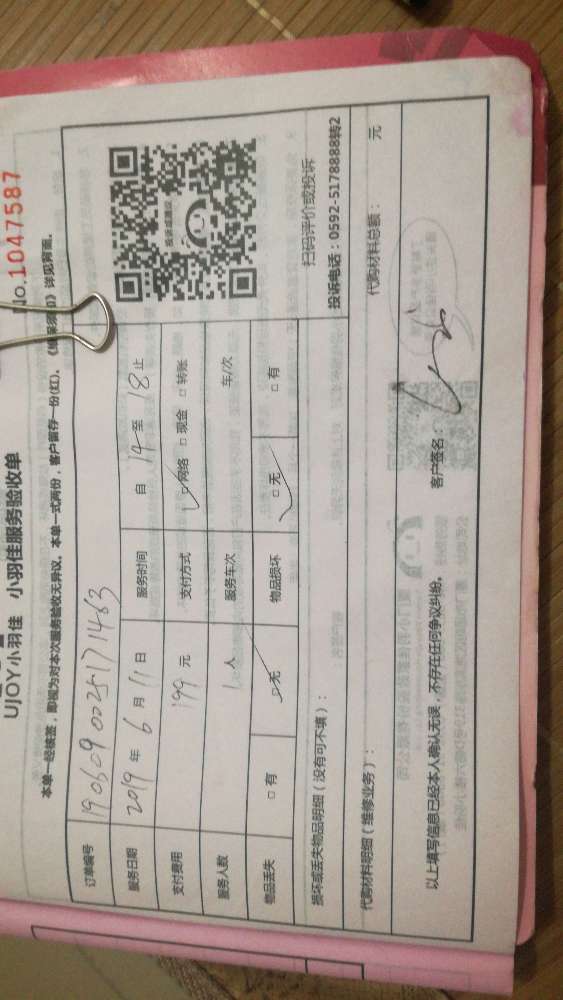 No.1047587
UJOY小羽佳 小羽佳服务验收单
本单一经核签，即视为对本次服务验收无异议。本单一式两份，客户留存一份(红)。《维保须知》详见背面。
订单编号 1906090025171463
服务日期 2019 年 6 月 11 日 服务时间 自 14 至 18 止
支付费用 199 元 支付方式 ☑网络 □现金 □转账
服务人数 1 人 服务车次 车/次
物品丢失 □有 ☑无 物品损坏 ☑无 □有
投诉或建议
扫码评价或投诉
投诉电话：0592-5178888转2
损坏或丢失物品明细（没有可不填）：
代购材料明细（维修业务）： 代购材料总额： 元
以上填写信息已经本人确认无误，不存在任何争议纠纷。 客户签名：